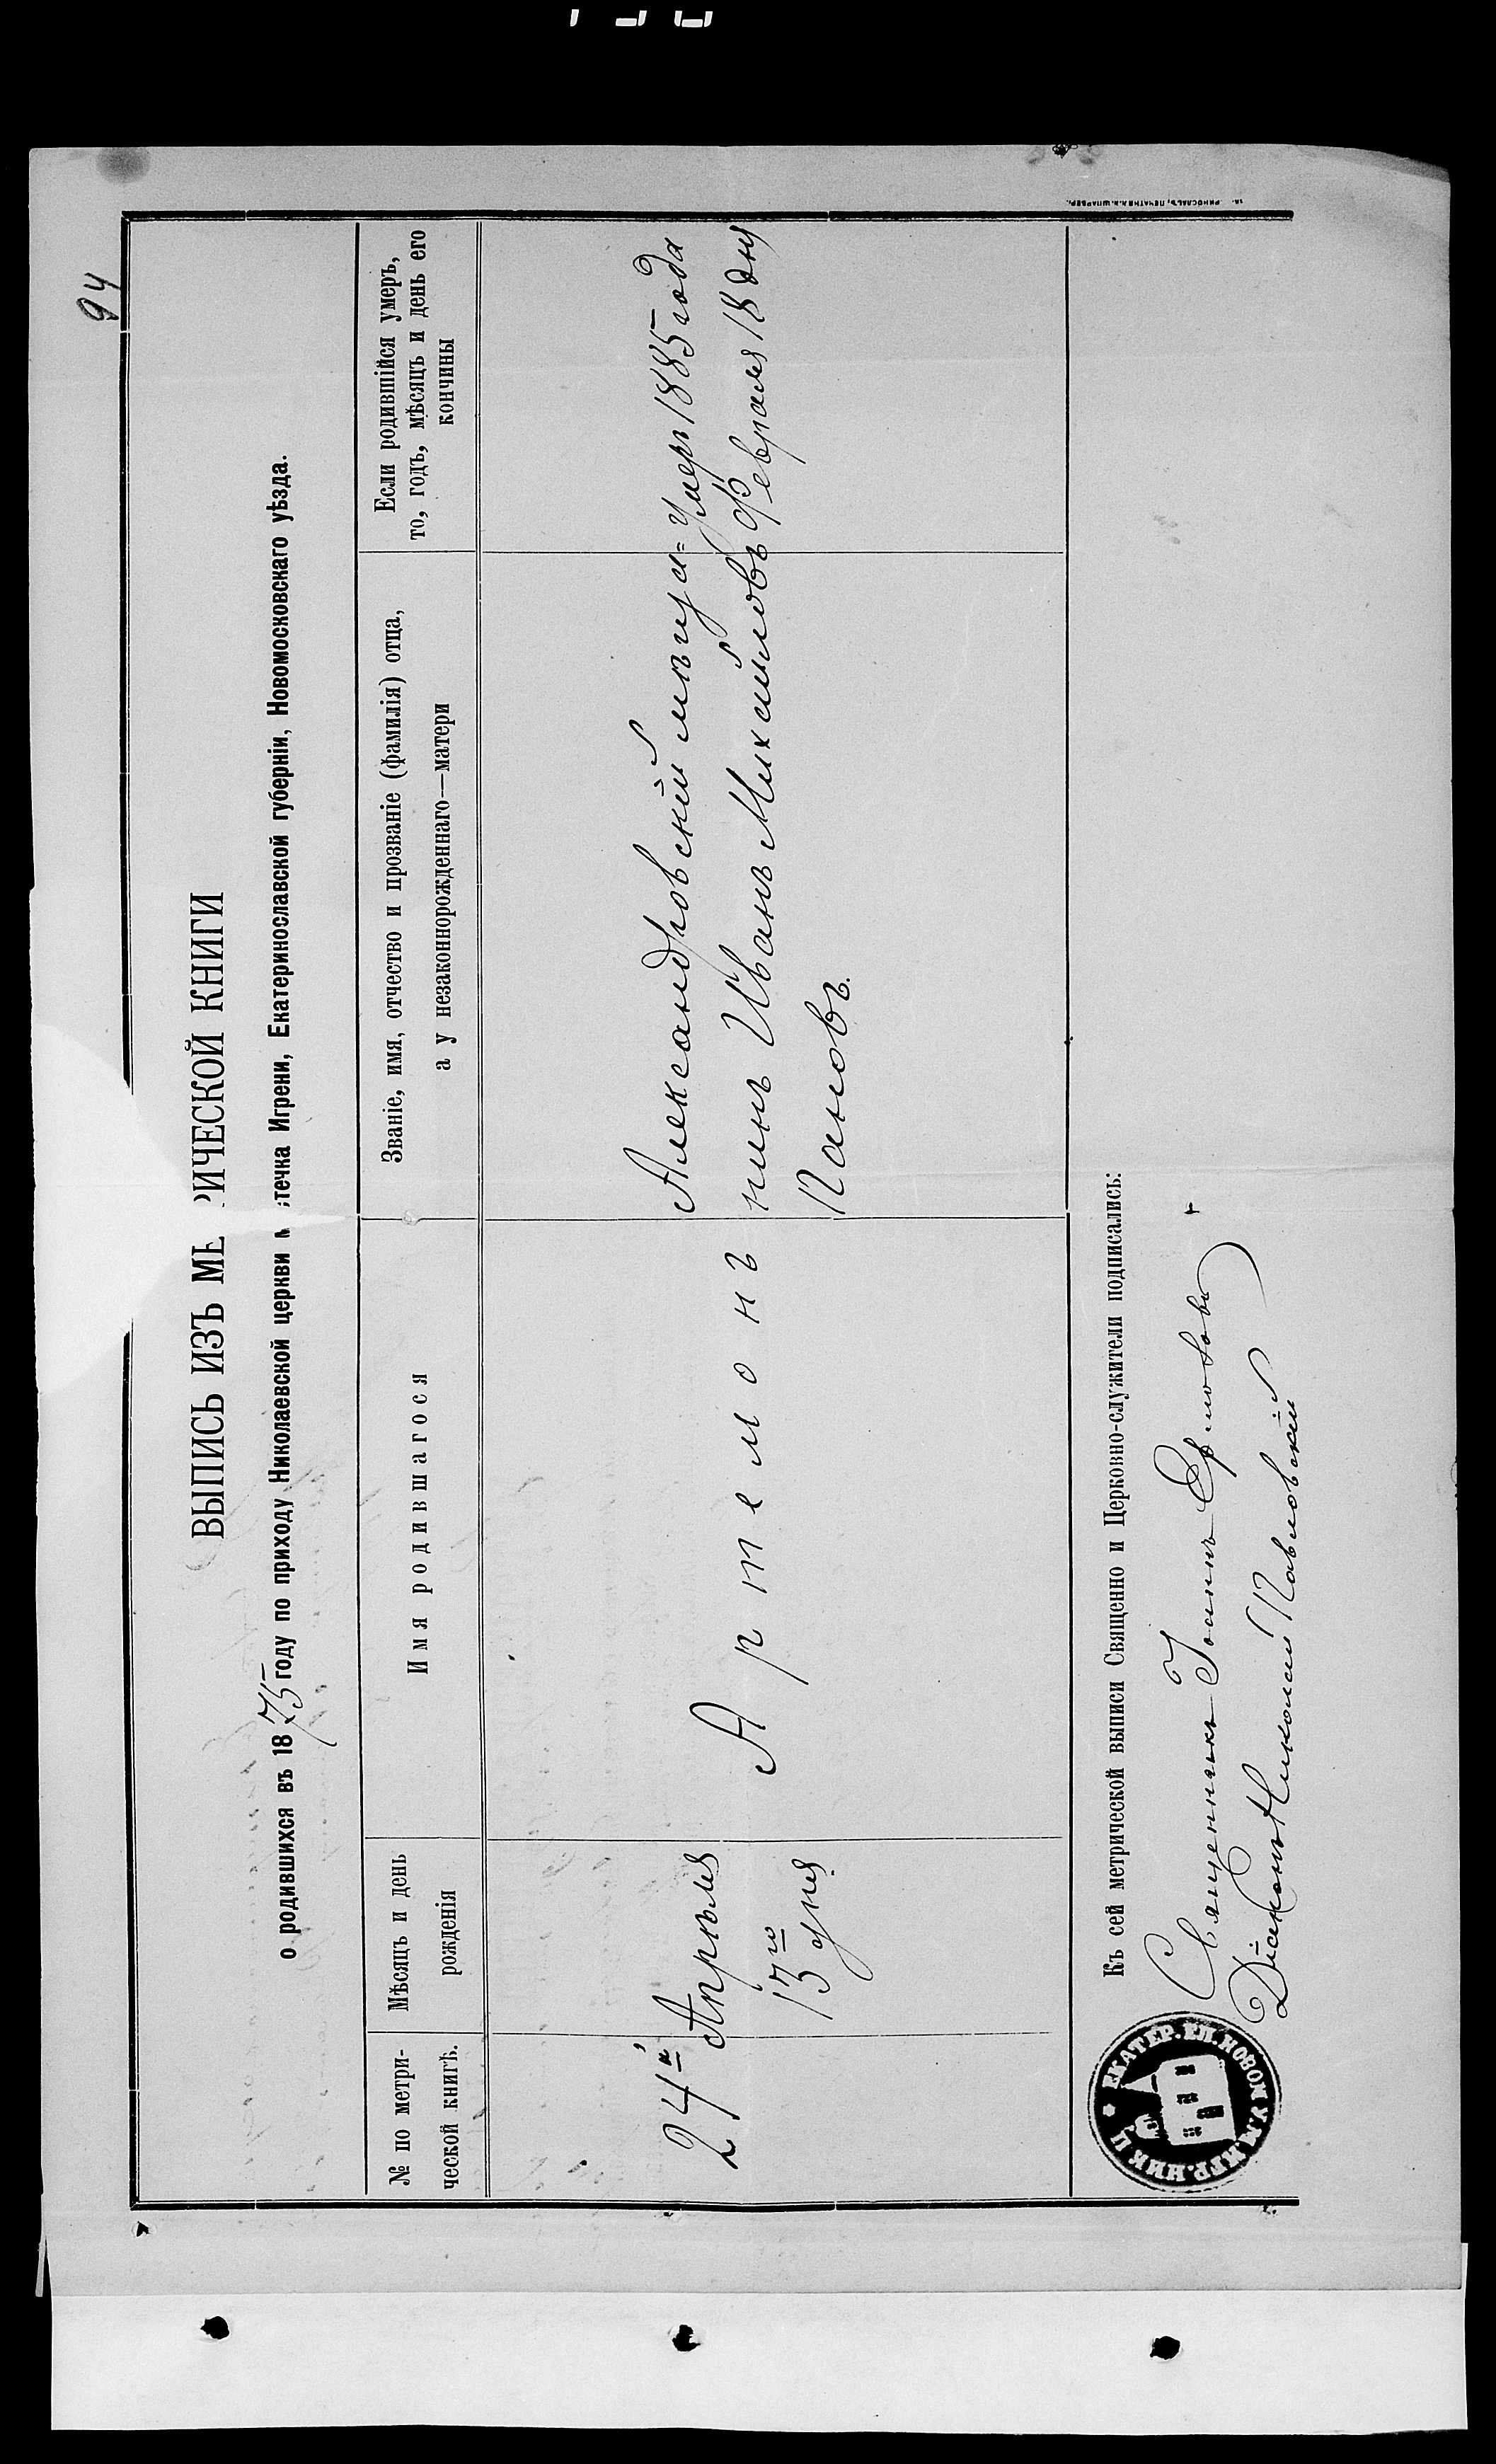 94
ВЫПИСЬ ИЗЪ МЕ РИЧЕСКОЙ КНИГИ
о родившихся въ 1875 году по приходу Николаевской церкви м стечка Игрени, Екатеринославской губернiи, Новомосковскаго уѣзда.
№ по метри-
ческой книгѣ.
Мѣсяцъ и день
рожденiя
Имя родившагося
Званiе, имя, отчество и прозванiе (фамилiя) отца,
а у незаконнорожденнаго—матери
Если родившiйся умеръ,
то, годъ, мѣсяцъ и день его
кончины
24й
Апрѣля
13го дня
Артемонъ
Александровскiй мѣща=
нинъ Иванъ Михайловъ
Пановъ.
Умеръ 1885 года
Февраля 18 дня
Къ сей метрической выписи Священно и Церковно-служители подписались:
Священникъ Iоаннъ
Дiаконъ Николай Павловскiй
ЕКАТЕР. ЕП. НОВОМ. У. М. ИГР. НИК. Ц.
РИНОСЛАВЪ, ПЕЧАТНЯ